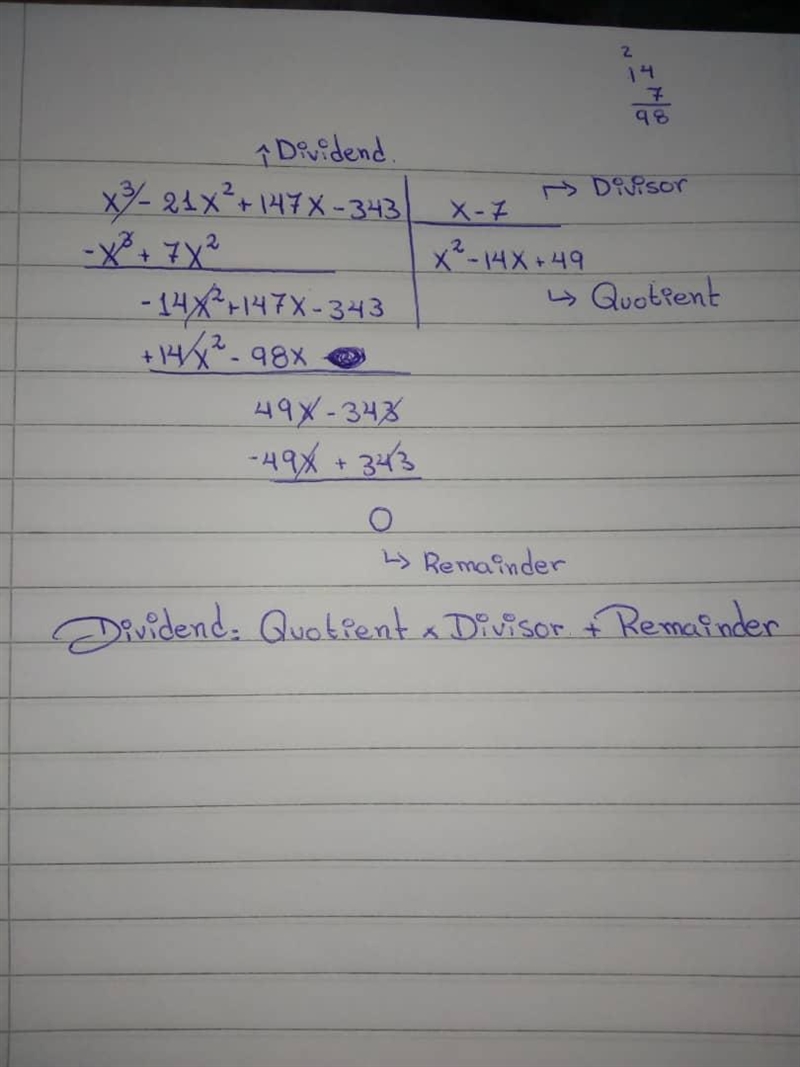 2
14
7
98
↑ Dividend.
x³ - 21x² + 147x - 343 | x - 7 → Divisor
-x³ + 7x² x² - 14x + 49
-14x² + 147x - 343 ↳ Quotient
+14x² - 98x
49x - 343
-49x + 343
0
↳ Remainder
Dividend = Quotient x Divisor + Remainder